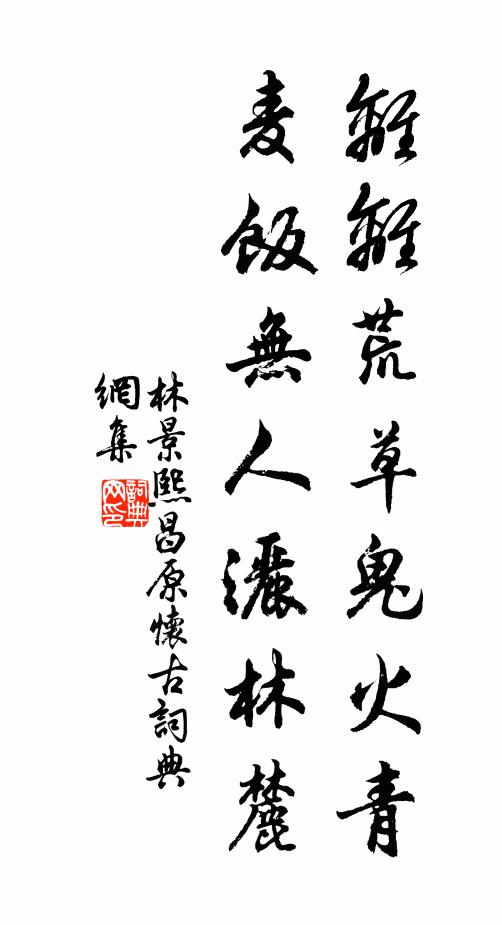 離離荒草鬼火青
麦飯無人灑林麓
林景熙昌原懷古詞典
網集
詞典
网印